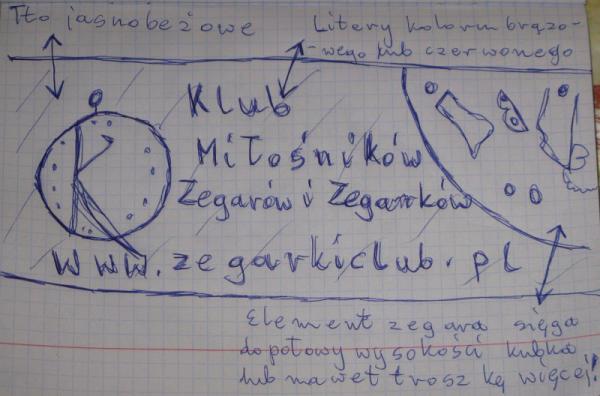 Tło jasnobeżowe
Litery kolorm brązo-
-wego lub czerwonego
Klub
Miłośników
Zegarów i Zegarków
www.zegarkiclub.pl
Element zegara sięga
do połowy wysokości kubka
lub nawet troszkę więcej!